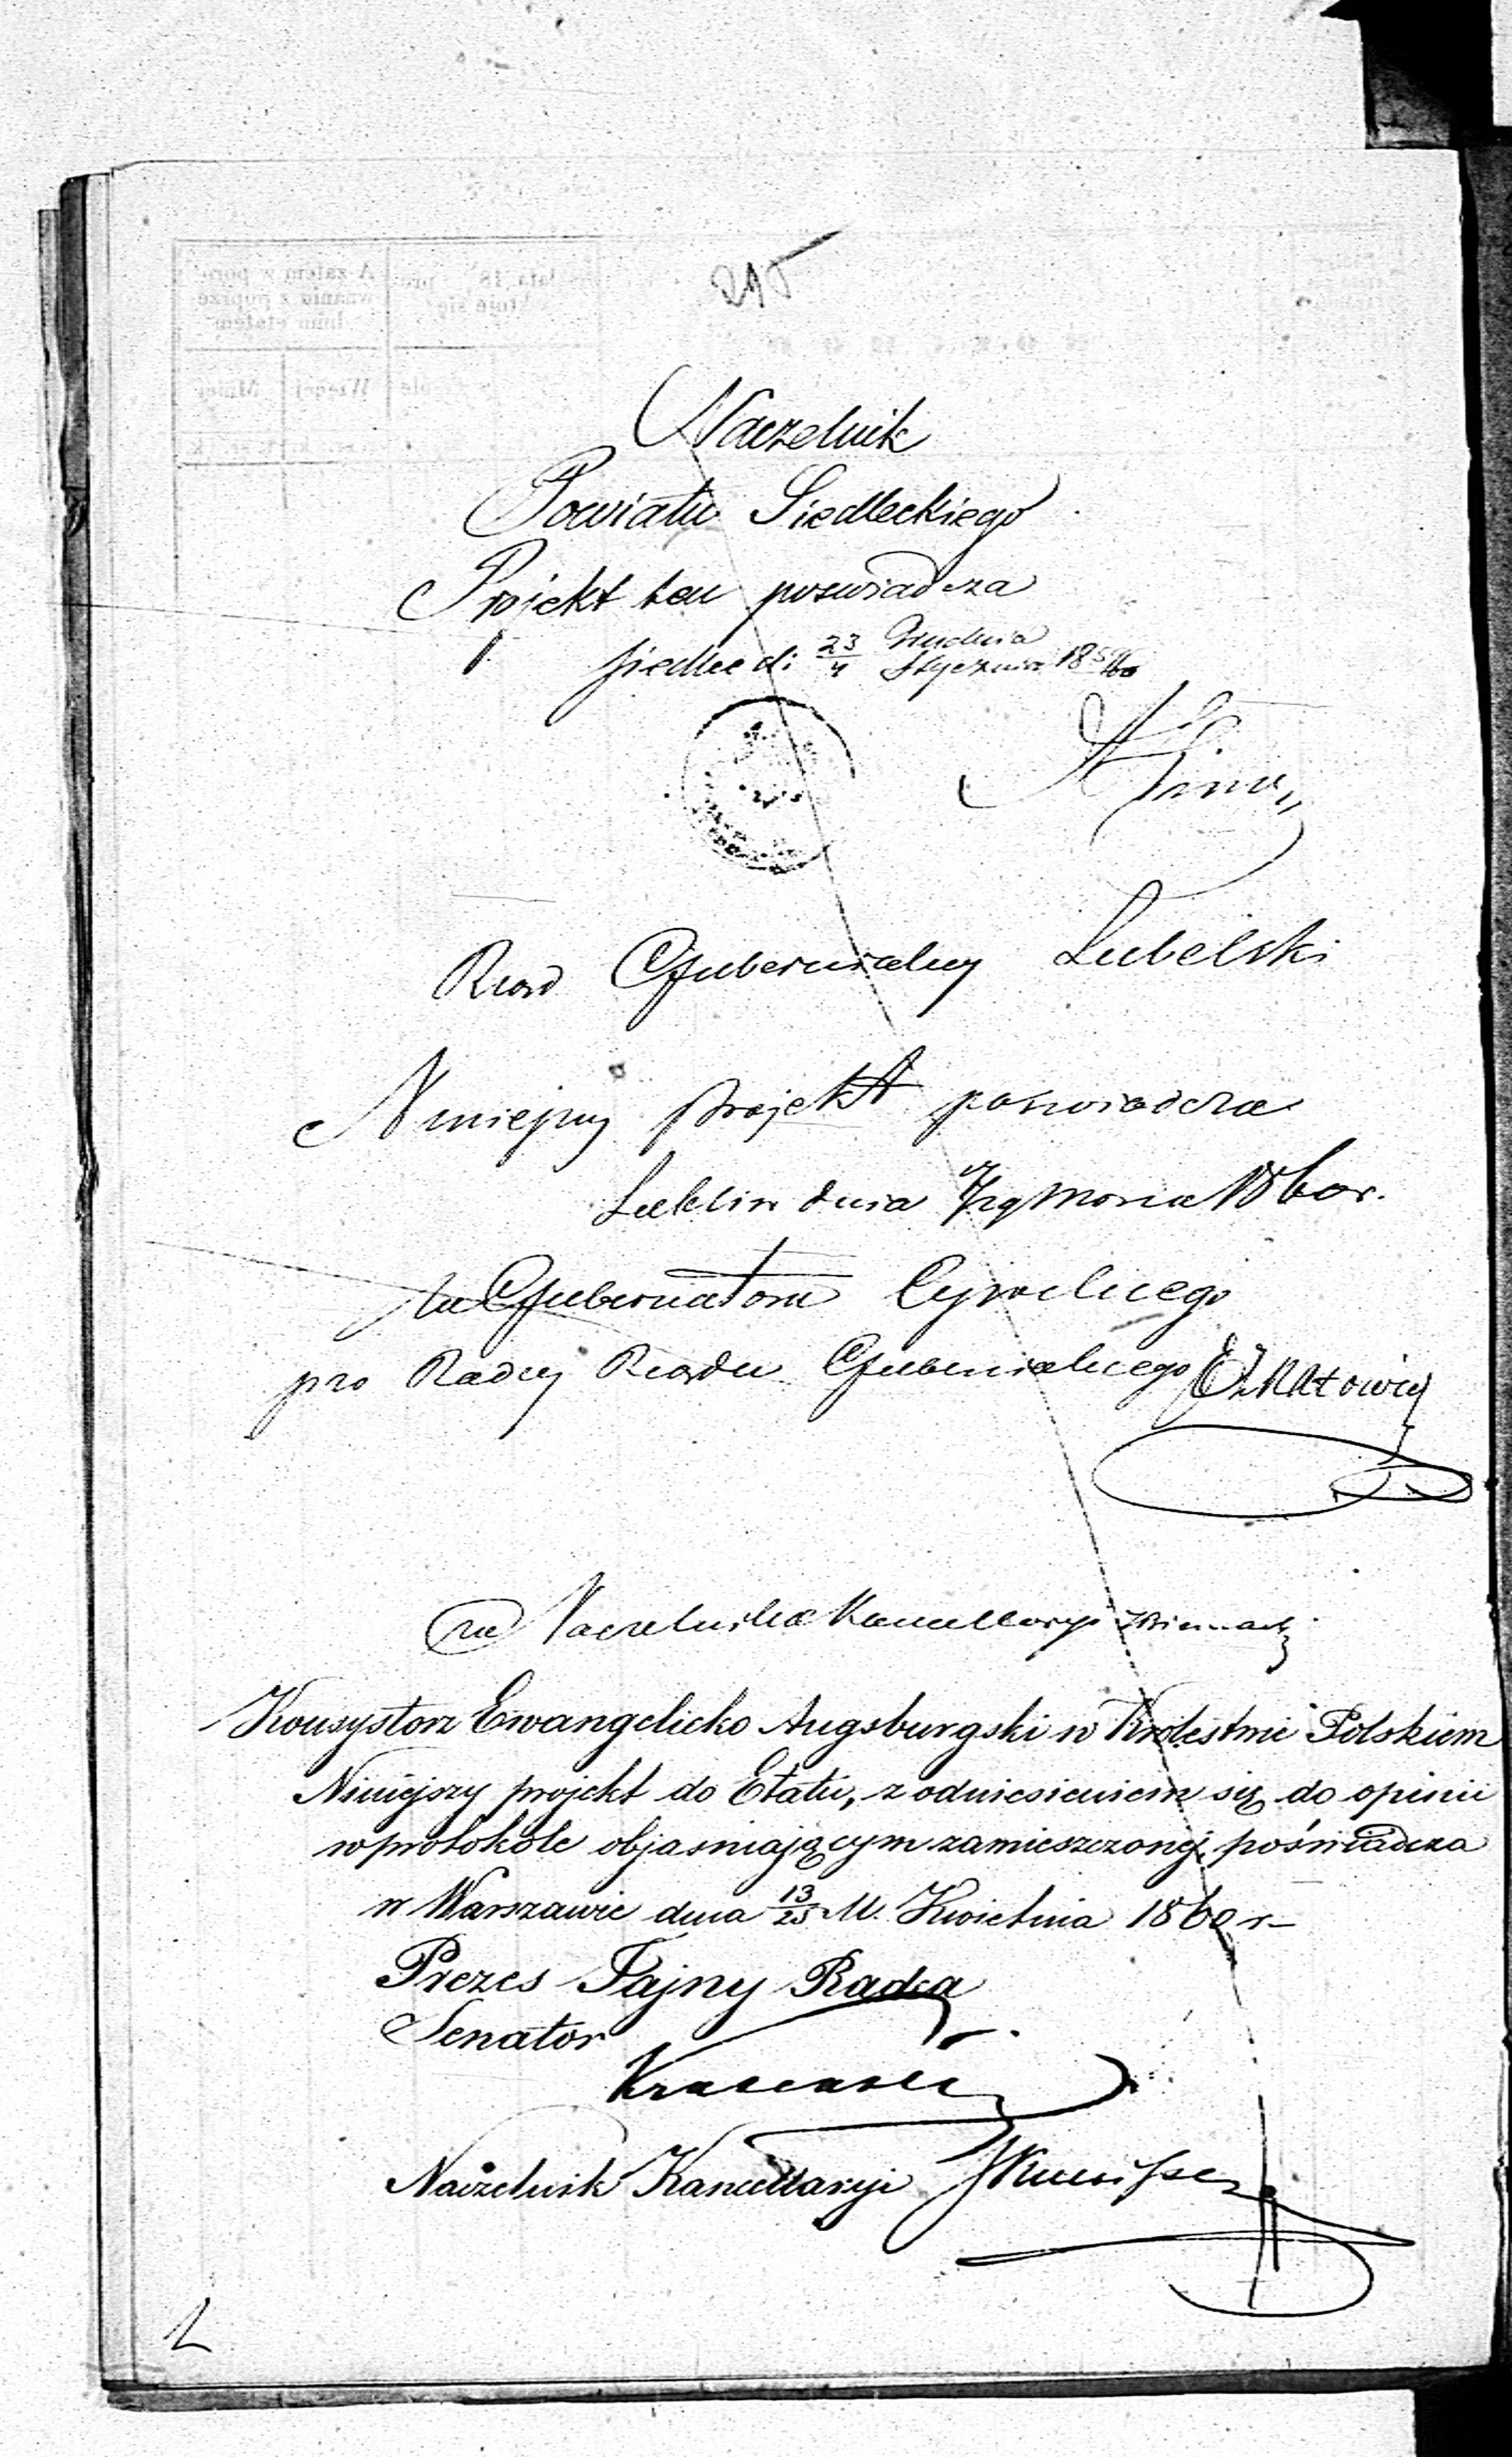 215
Naczelnik
Powiatu Siedleckiego
Projekt ten poswiadcza
Siedlce d: 23/4 Grudnia/Stycznia 1859/60
Rząd Gubernialny Lubelski
Niniejszy projekt poswiadcza
Lublin dnia Marca 1860 r.
za Gubernatora Cywilnego
pro Radcy Rządu Gubernialnego
za Naczelnika Kancellaryi
Konsystorz Ewangelicko Augsburgski w Krolestwie Polskiem
Niniejszy projekt do Etatu, z odniesieniem się do opinii
w protokole objasniającym zamieszczonej, poświadcza
w Warszawie dnia 13/25 M. Kwietnia 1860 r
Prezes Tajny Radca
Senator
Naczelnik Kancellaryi